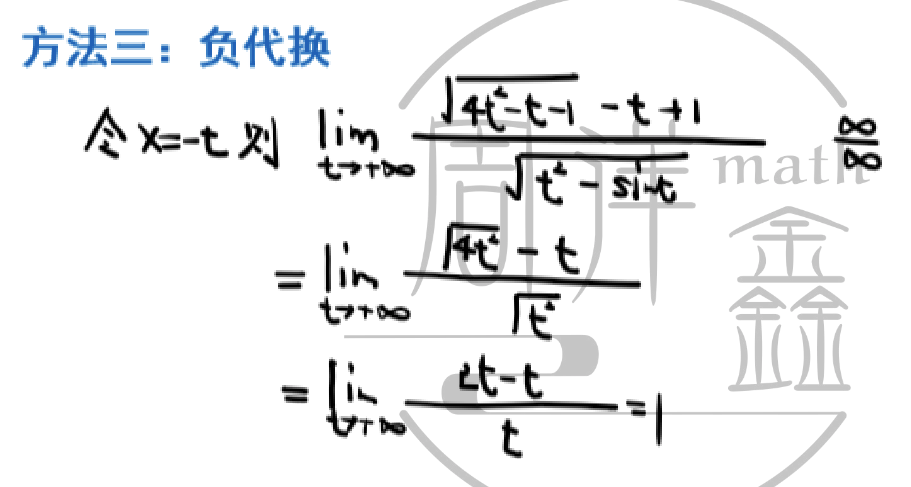 方法三：负代换
令 x=-t 则 lim t→+∞ (√(4t²-t-1) -t+1)/√(t²-sint) ∞/∞
= lim t→+∞ (√(4t²) - t)/√(t²)
= lim t→+∞ (2t-t)/t = 1
周洋 math
鑫